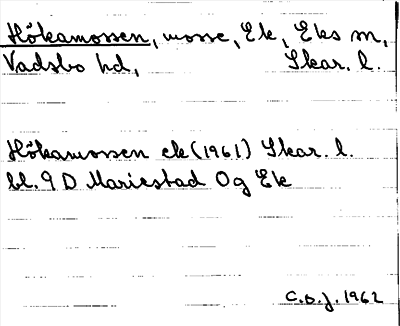 Hökamossen, mosse, Ek, Eks sn,
Vadsbo hd, Skar. l.
Hökamossen ek (1961) Skar. l.
bl. 9 D Mariestad Og Ek
C.D.J. 1962